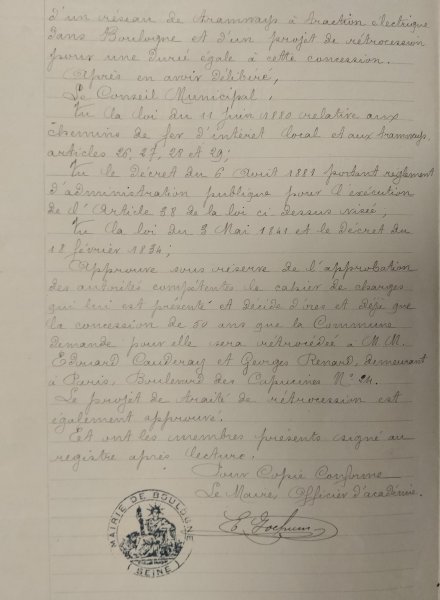 d'un réseau de tramways à traction électrique
dans Boulogne et d'un projet de rétrocession
pour une durée égale à cette concession.
Après en avoir délibéré,
Le Conseil Municipal,
Vu la loi du 11 Juin 1880 relative aux
chemins de fer d'intérêt local et aux tramways,
articles 26, 27, 28 et 29;
Vu le décret du 6 Août 1881 portant règlement
d'administration publique pour l'exécution
de l'Article 38 de la loi ci dessus visée,
Vu la loi du 3 Mai 1841 et le décret du
18 février 1834;
Approuve sous réserve de l'approbation
des autorités compétentes le cahier de charges
qui lui est présenté et décide d'ores et déjà que
la concession de 50 ans que la Commune
demande pour elle sera rétrocédée à M.M.
Edouard Cauderay et Georges Renard, demeurant
à Paris, Boulevard des Capucines N° 24.
Le projet de traité de rétrocession est
également approuvé.
Et ont les membres présents signé au
registre après lecture.
Pour Copie Conforme
Le Maire Officier d'académie.
MAIRIE DE BOULOGNE
(SEINE)